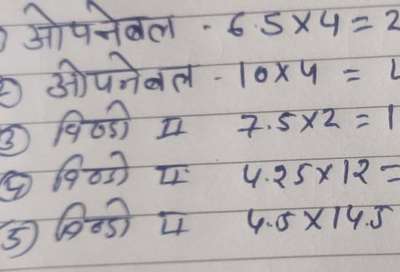 १) ओपनेबल - 6.5×4 = 2
२) ओपनेबल - 10×4 = 4
३) विण्डो II 7.5×2 = 1
४) विण्डो II 4.25×12 =
5) विण्डो II 4.5×14.5